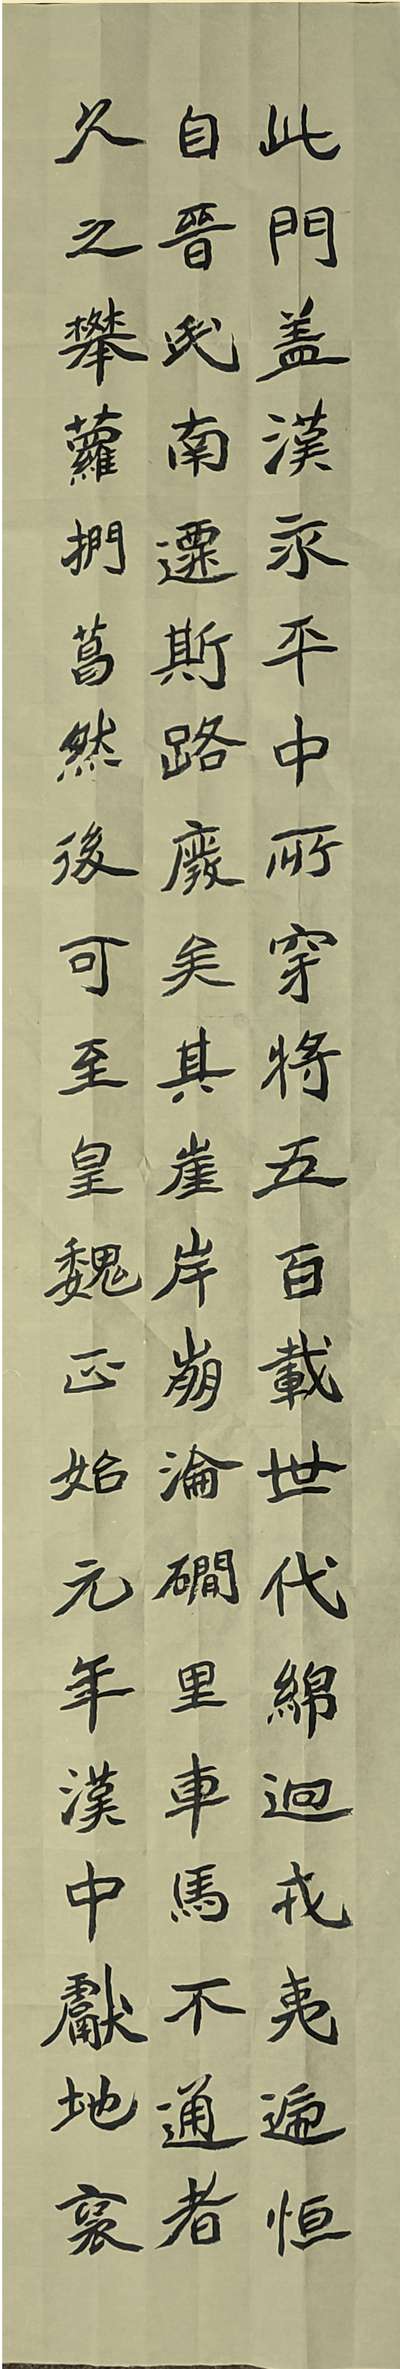 此門蓋漢永平中所穿將五百載世代綿迴戎夷遞恒
自晉氏南遷斯路廢矣其崖岸崩淪磵里車馬不通者
久之攀蘿捫葛然後可至皇魏正始元年漢中獻地褒